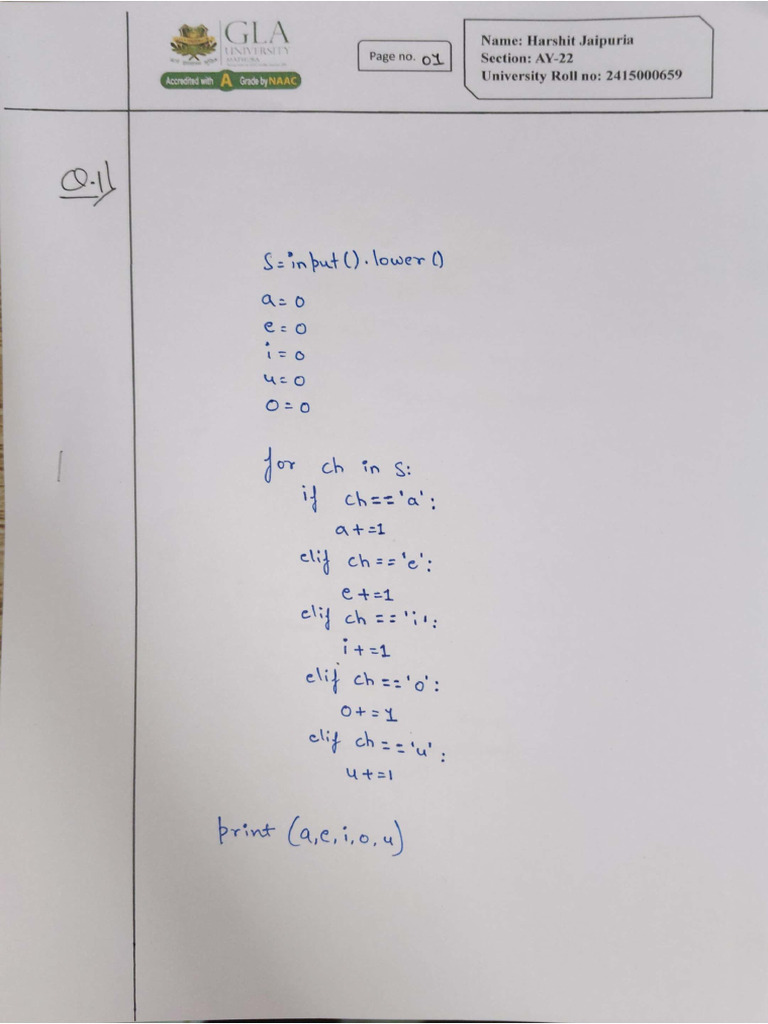 GLA
UNIVERSITY
MATHURA
Accredited with A Grade by NAAC
Page no. 01
Name: Harshit Jaipuria
Section: AY-22
University Roll no: 2415000659
Q.1)
S=input().lower()
a=0
e=0
i=0
u=0
o=0
for ch in s:
if ch=='a':
a+=1
elif ch=='e':
e+=1
elif ch=='i':
i+=1
elif ch=='o':
o+=1
elif ch=='u':
u+=1
print (a,e,i,o,u)